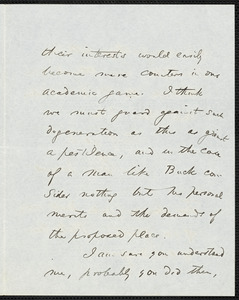 their interests would easily
become mere counters in our
academic game. I think
we must guard against such
degeneration as this as against
a pestilence, and in the case
of a man like Buck con-
sider nothing but the personal
merits and the demands of
the proposed place.
I am sure you understand
me, probably you did then,